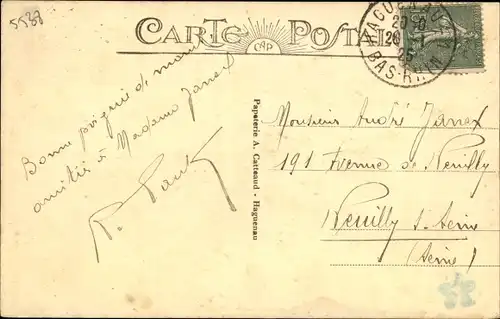 5538
CARTE POSTALE
CAP
HAGUENAU
BAS-RHIN
Bonne poignée de main
amitié à Madame Janex
Papeterie A. Catteaud - Haguenau
Monsieur André Janex
191 Avenue de Neuilly
Neuilly s. Seine
(Seine)